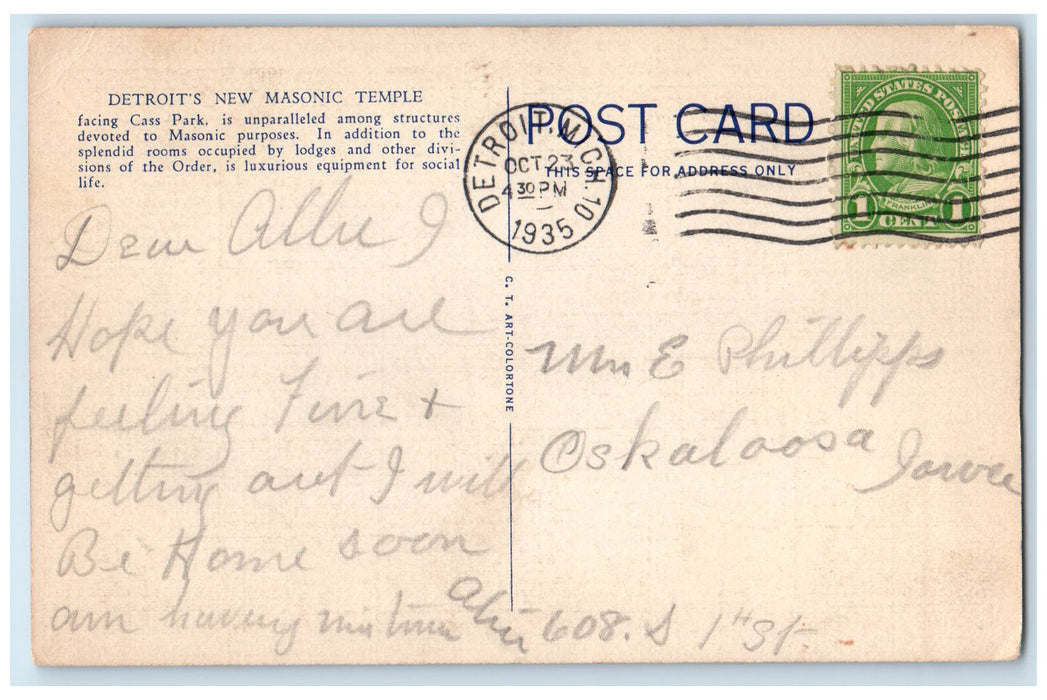 DETROIT'S NEW MASONIC TEMPLE
facing Cass Park, is unparalleled among structures
devoted to Masonic purposes. In addition to the
splendid rooms occupied by lodges and other divi-
sions of the Order, is luxurious equipment for social
life.
POST CARD
THIS SPACE FOR ADDRESS ONLY
DETROIT, MICH. 10
OCT 23
4 30 PM
1935
UNITED STATES POSTAGE
FRANKLIN
1 CENT 1
C. T. ART-COLORTONE
Dear Allie I
Hope you are
feeling Fine +
getting out I will
Be Home soon
am having
Mrs E Phillipps
Oskaloosa Iowa
608. S 1st St